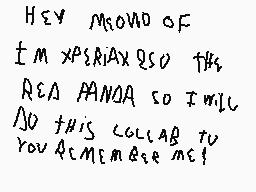 HEY MEOWD OF
IM XPERIAXQSO THE
RED PANDA SO I WILL
DO THIS COLLAB TO
YOU REMEMBER ME!